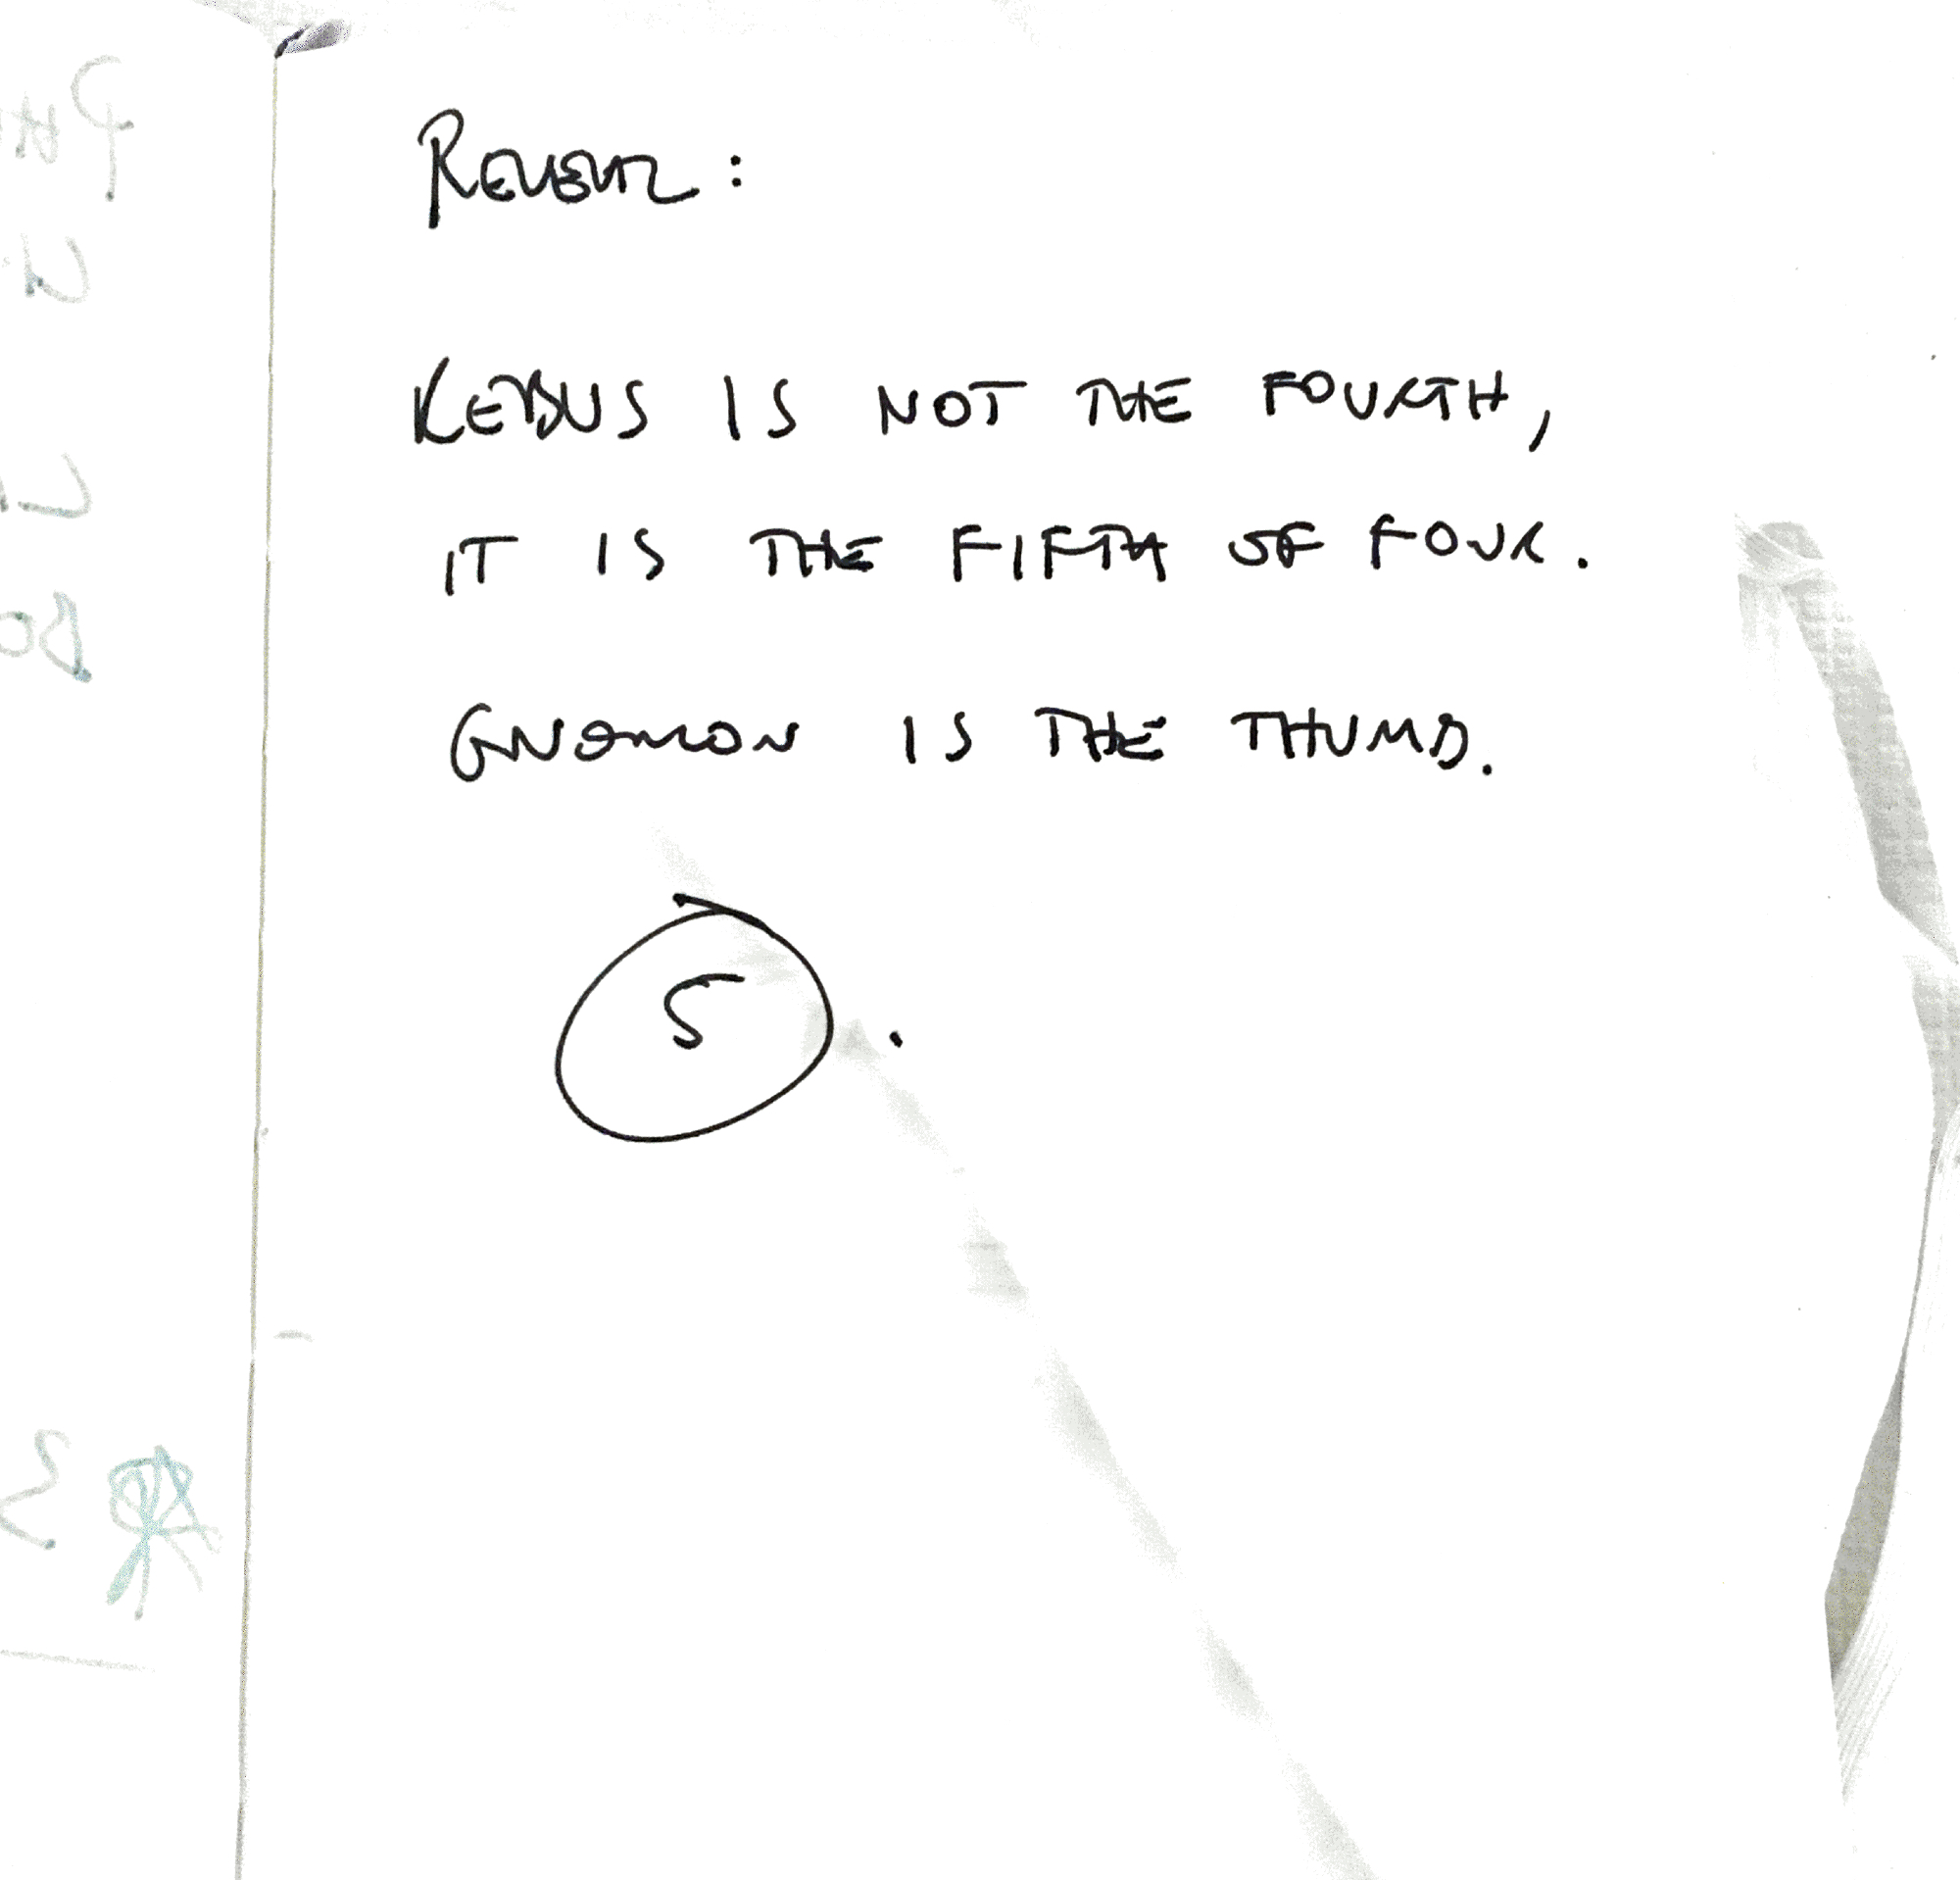 REBUS IS NOT THE FOURTH,
IT IS THE FIFTH OF FOUR.
GNOMON IS THE THUMB.
5.